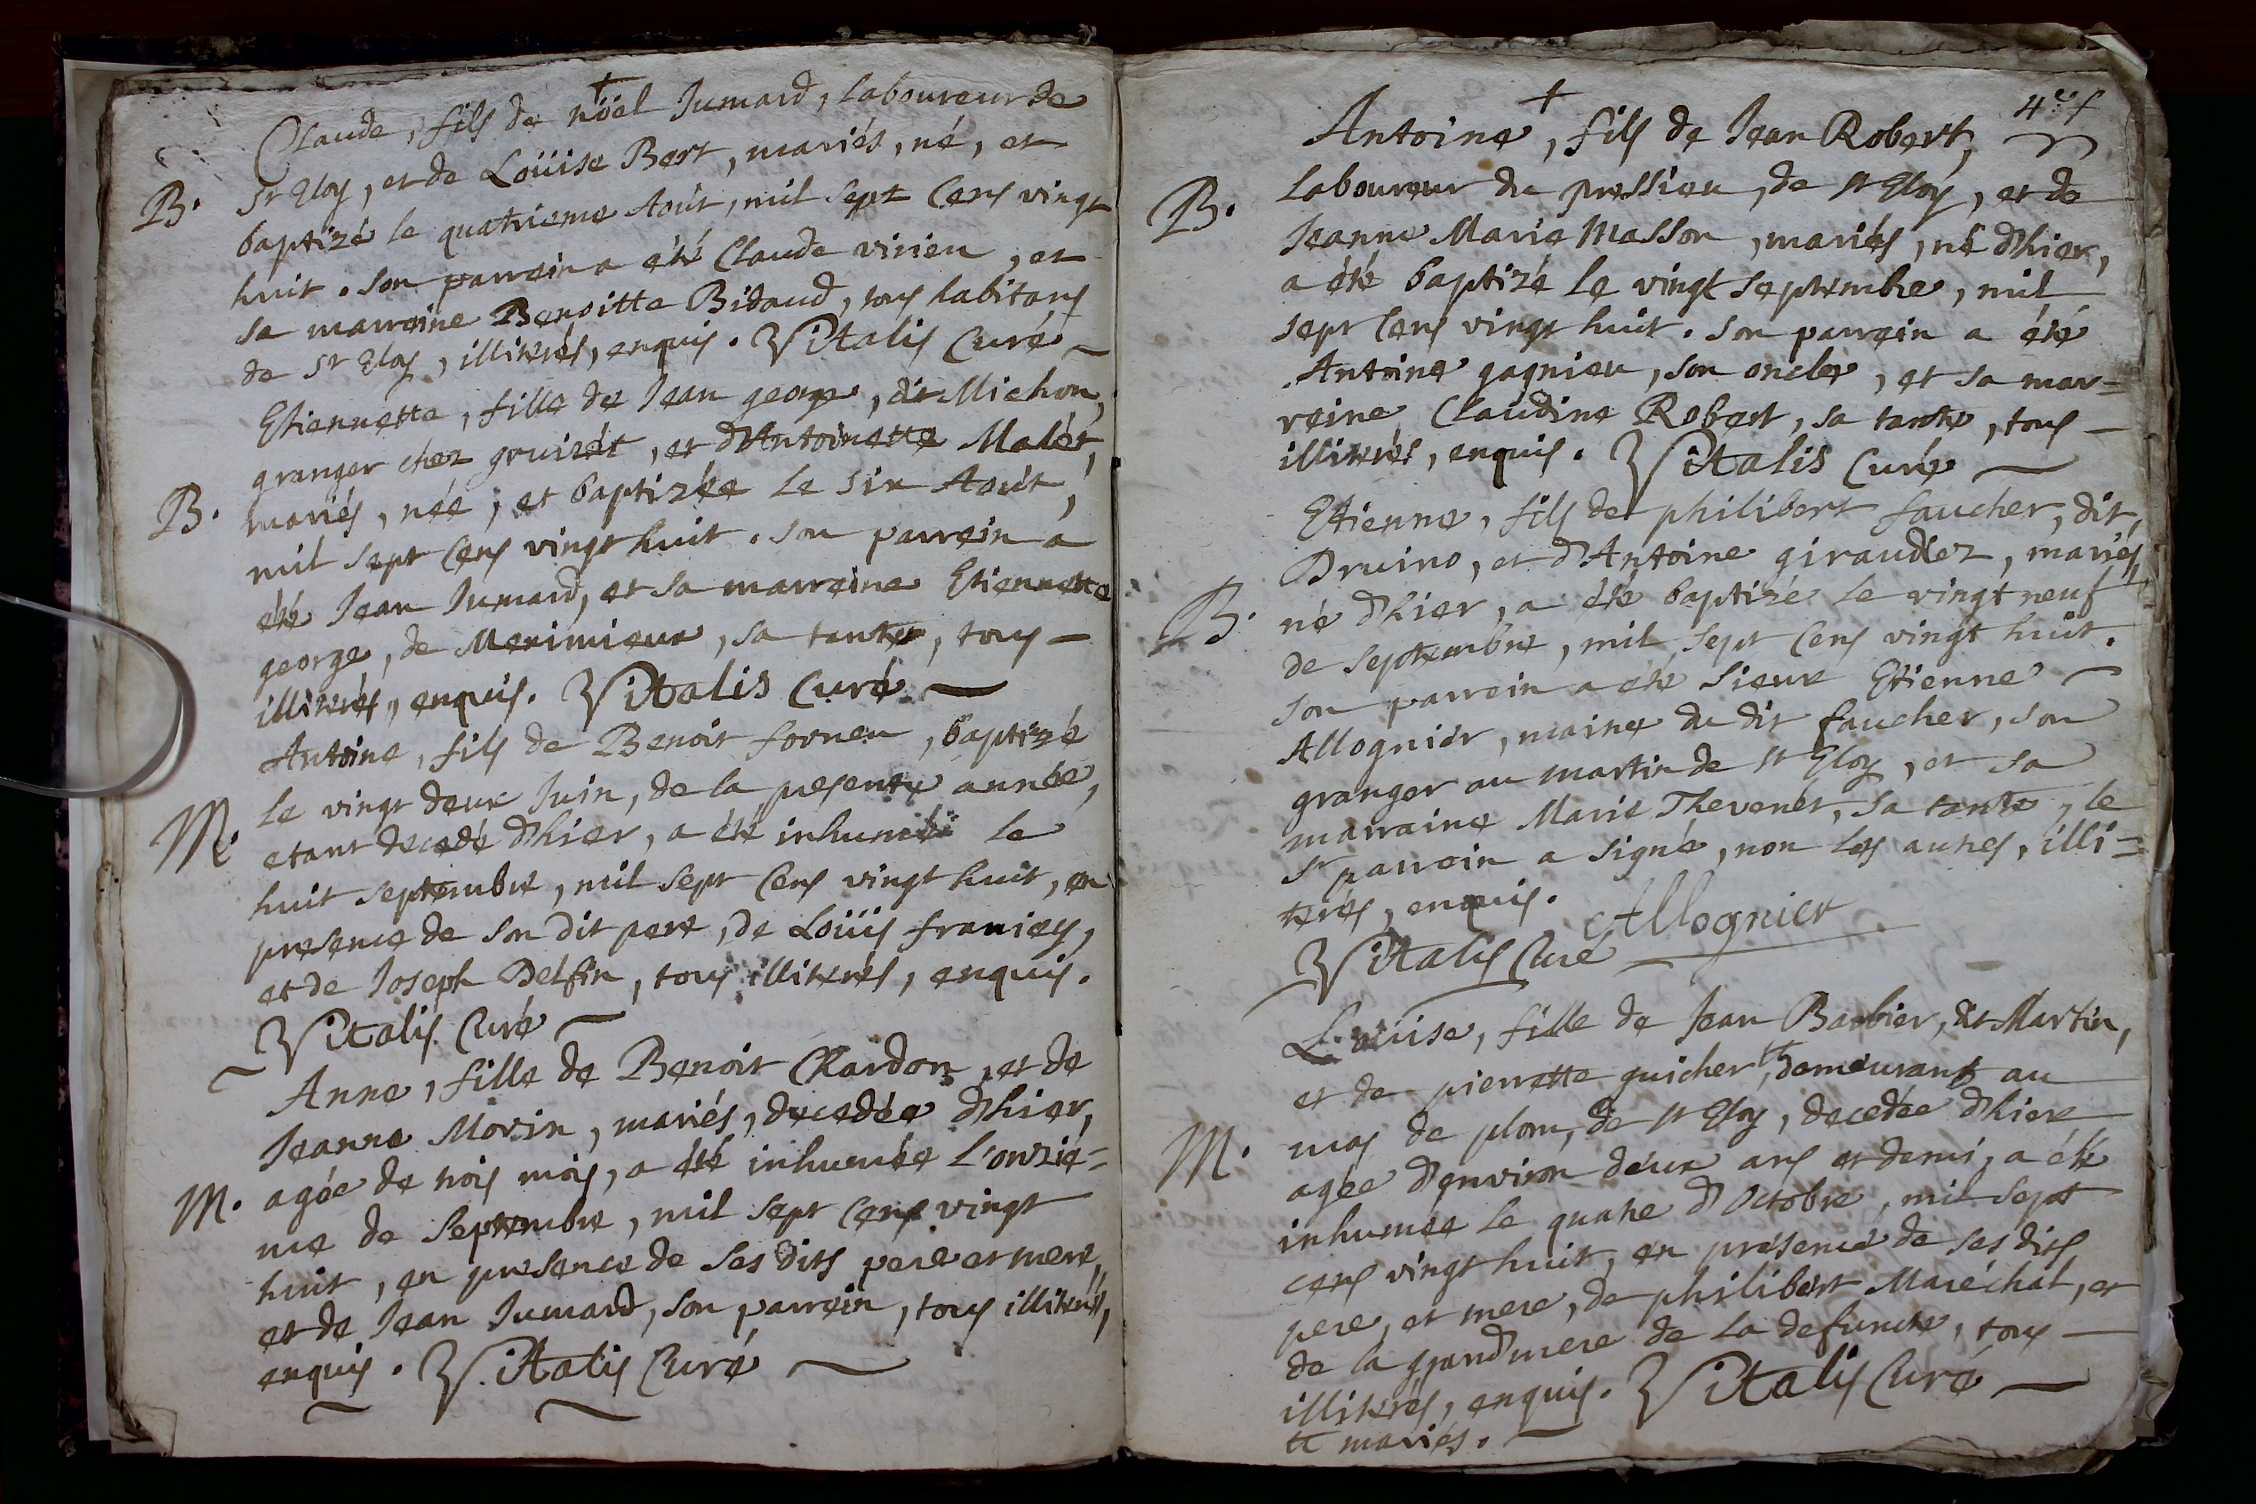 +
Claude, fils de nöel Jumard, laboureur de
B. St Eloy, et de Loüise Bert, mariés, né, et
baptizé le quatrieme Août, mil sept cens vingt
huit. son parrein a été Claude virieu, et
sa marreine Benoitte Bidaud, tous habitans
de St Eloy, illiterés, enquis. Vitalis Curé
Etiennette, fille de Jean george, dit Michon,
granger chez gruizét, et d'Antoinette Malét,
B. mariés, née, et baptizée le six Août,
mil sept cens vingt huit. son parrein a
été Jean Jumard, et sa marreine Etiennette
george, de Meximieux, sa tante, tous
illiterés, enquis. Vitalis Curé
Antoine, fils de Benoit forneu, baptizé
M. le vingt deux Juin, de la presente année,
etant decedé d'hier, a été inhumé le
huit septembre, mil sept cens vingt huit, en
presence de son dit pere, de Loüis
et de Joseph Delfin, tous illiterés, enquis.
Vitalis Curé
Anne, fille de Benoit Chardon, et de
Jeanne Morin, mariés, decedée d'hier,
M. agée de trois mois, a été inhumée l'onzié=
me de septembre, mil sept cens vingt
huit, en presence de ses dits pere et mere,
et de Jean Jumard, son parrein, tous illiterés,
enquis. Vitalis Curé
+
4e f
Antoine, fils de Jean Robert,
B. laboureur du pressieu, de St Eloy, et de
Jeanne Marie Masson, mariés, né d'hier,
a été baptizé le vingt septembre, mil
sept cens vingt huit. son parrein a été
Antoine gagnieu, son oncle, et sa mar=
reine Claudine Robert, sa tante, tous
illiterés, enquis. Vitalis Curé
Etienne, fils de philibert faucher, dit,
Druino, et d'Antoine giraudiez, mariés,
B. né d'hier, a été baptizé le vingt neuf
de septembre, mil sept cens vingt huit.
son parrein a été sieur Etienne
Allognier, maitre du dit faucher, son
granger au martin de St Eloy, et sa
marraine Marie Thevenet, sa tante, le
Sr parrein a signé, non les autres, illi=
terés, enquis.
Allognier
Vitalis Curé
Loüise, fille de Jean Barbier, dit Martin,
et de pierrette guichert, demeurans au
M. mas de plom, de St Eloy, decedée d'hier
agée d'environ deux ans et demi, a été
inhumée le quatre d'Octobre, mil sept
cens vingt huit, en presence de ses dits
pere, et mere, de philibert Maréchal, et
de la grand'mere de la defuncte, tous
illiterés, enquis. Vitalis Curé
tt mariés.